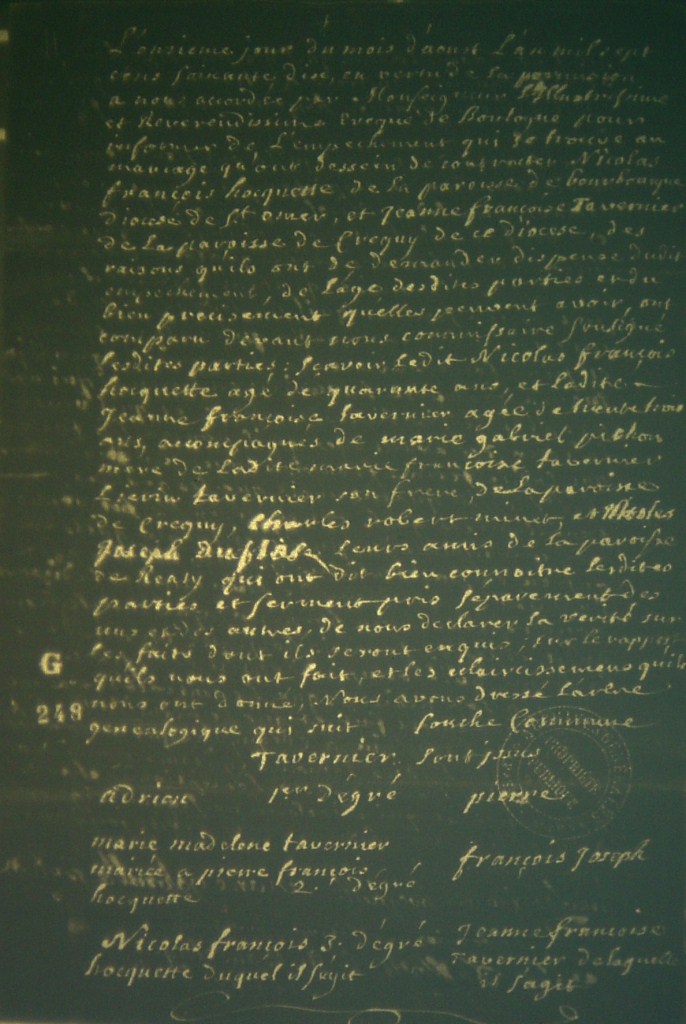 L'onzieme jour du mois d'aoust L'an mil sept
cens soixante, dix, en vertu de la permission
a nous accordée par Monseigneur L'Illustrissime
et Reverendissime Evêque de Boulogne pour
informer de L'empechement qui se trouve au
mariage qu'ont dessein de contracter Nicolas
françois hocquette de la paroisse de bourbourque
diocese de St omer, et Jeanne françoise Tavernier
de la paroisse de Crequy de ce diocese, des
raisons qu'ils ont de demander dispense dudit
empechement, de L'age desdites parties et du
bien precisement qu'elles peuvent avoir, ont
comparu devant nous commissaire sousigné
lesdites parties; sçavoir, Ledit Nicolas françois
hocquette agé de quarante ans, et Ladite
Jeanne françoise Tavernier agée de trente trois
ans, accompagnés de marie gabriel pithon
mere de Ladite marie françoise tavernier
tavernier son frere, de la paroisse
de Crequy, Charles robert minet, et
Joseph leurs amis de la paroisse
de qui ont dit bien connoitre lesdites
parties et serment pris separement des
uns et des autres, de nous declarer la verité sur
les faits dont ils seront enquis; sur le rapport
qu'ils nous ont fait, et les eclaircissemens qu'ils
nous ont donné, Nous avons dressé l'arbre
genealogique qui suit Souche Commune
Tavernier sont issus
adrien 1er Dégré pierre
marie madelene tavernier
mariée a pierre françois françois Joseph
2. dégré
hocquette
Nicolas françois 3. dégré Jeanne françoise
hocquette duquel il s'agit Tavernier de laquelle
il s'agit
G
249